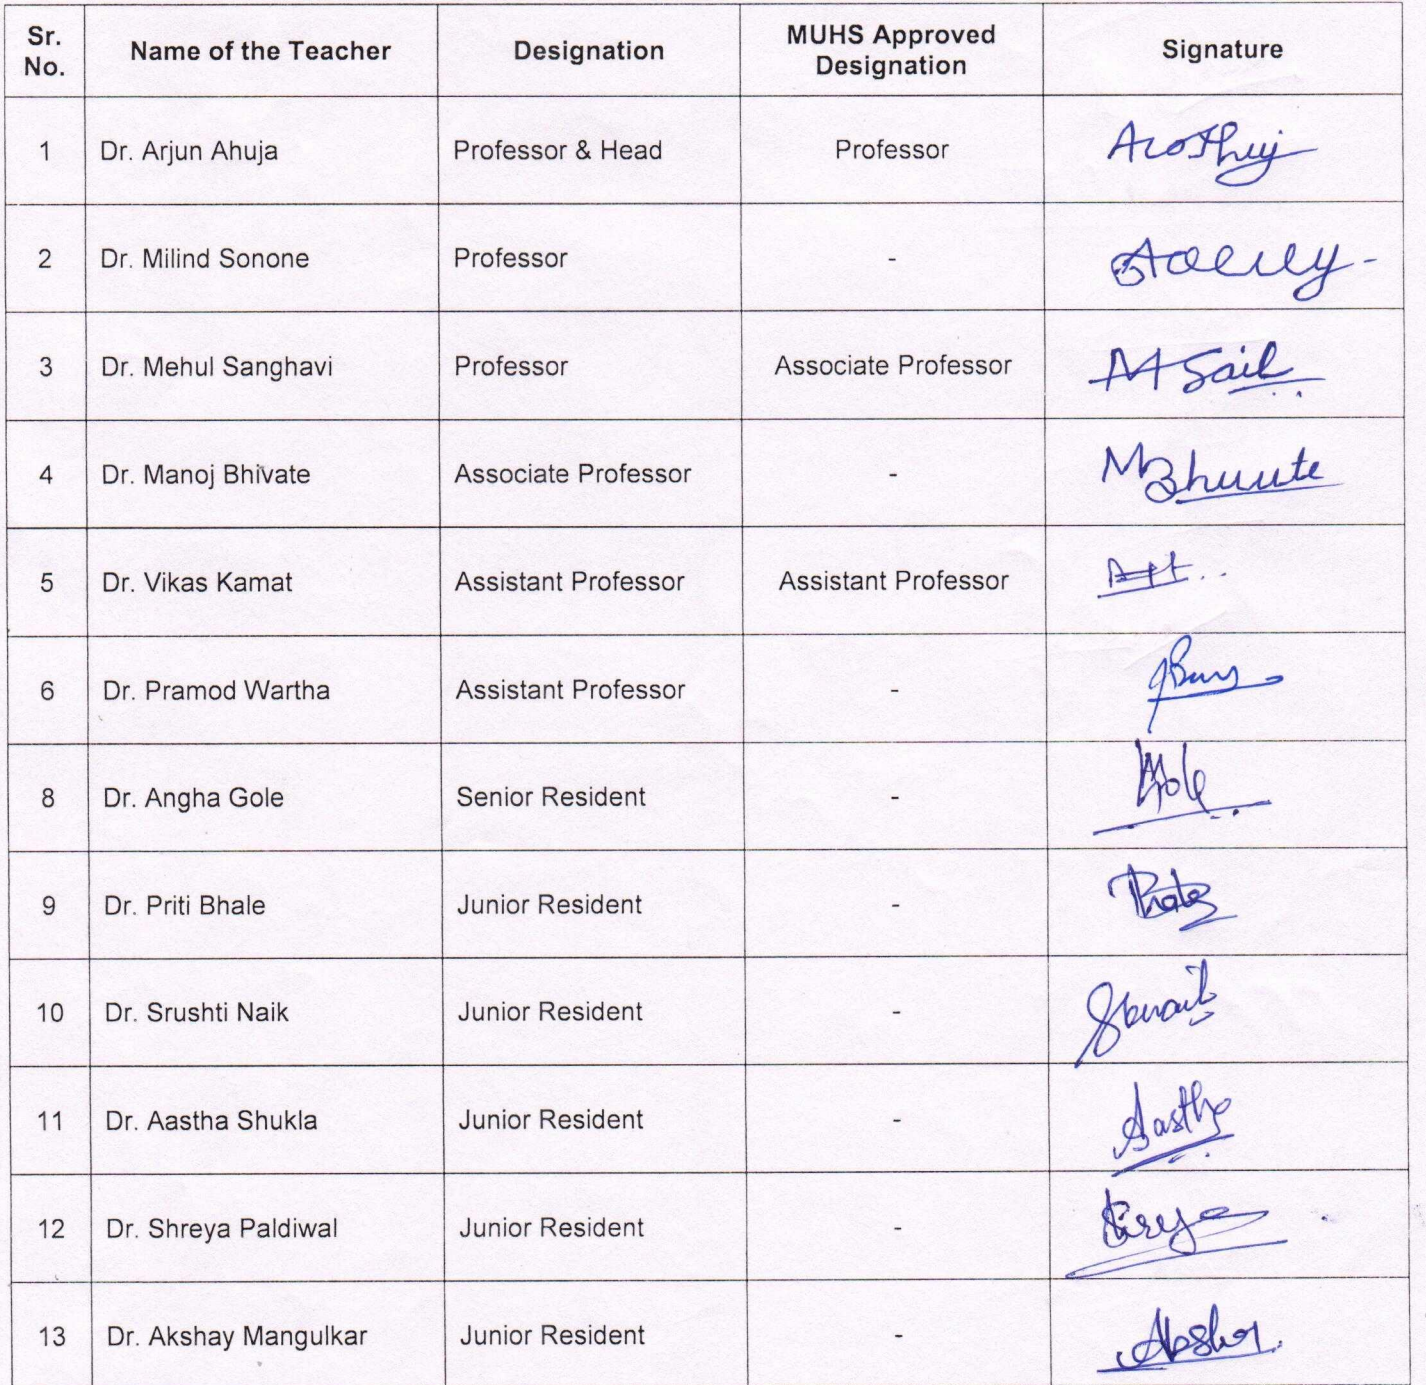 Sr. No. Name of the Teacher Designation MUHS Approved Designation Signature
1 Dr. Arjun Ahuja Professor & Head Professor
2 Dr. Milind Sonone Professor -
3 Dr. Mehul Sanghavi Professor Associate Professor
4 Dr. Manoj Bhivate Associate Professor -
5 Dr. Vikas Kamat Assistant Professor Assistant Professor
6 Dr. Pramod Wartha Assistant Professor -
8 Dr. Angha Gole Senior Resident -
9 Dr. Priti Bhale Junior Resident -
10 Dr. Srushti Naik Junior Resident -
11 Dr. Aastha Shukla Junior Resident - Aastha
12 Dr. Shreya Paldiwal Junior Resident -
13 Dr. Akshay Mangulkar Junior Resident -